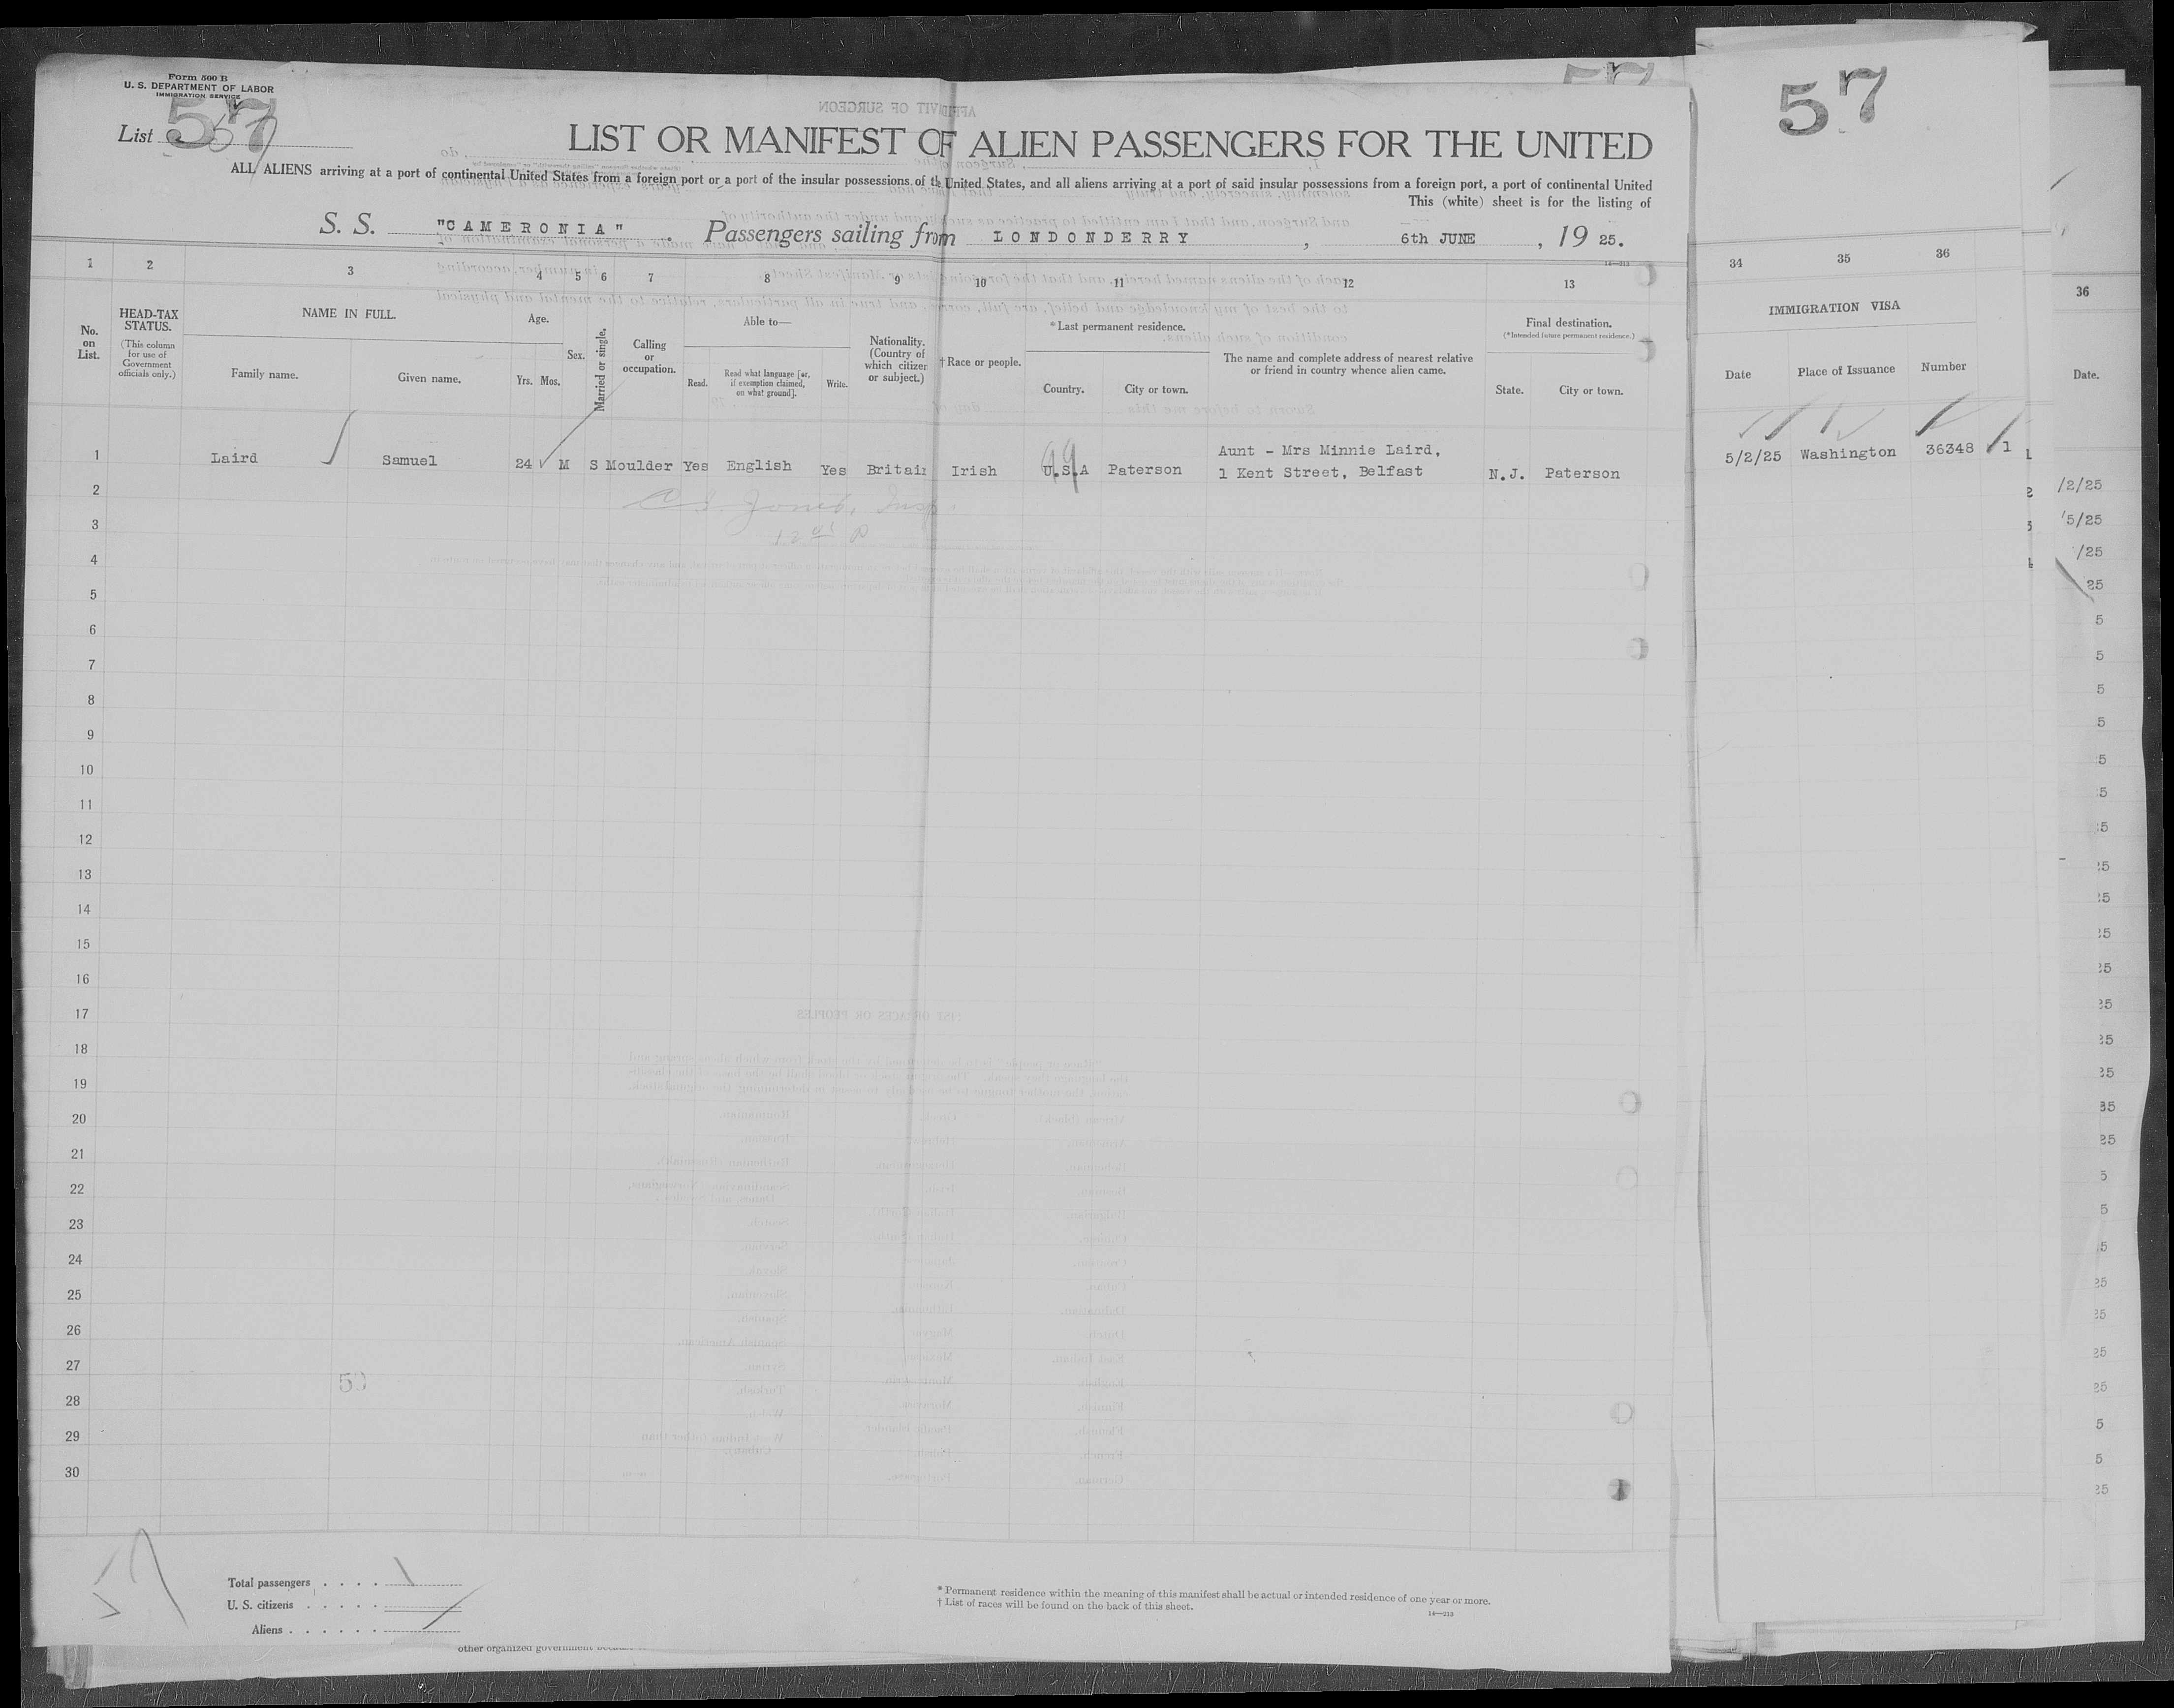 Form 500 B
U. S. DEPARTMENT OF LABOR
IMMIGRATION SERVICE
57
List 57
LIST OR MANIFEST OF ALIEN PASSENGERS FOR THE UNITED
ALL ALIENS arriving at a port of continental United States from a foreign port or a port of the insular possessions of the United States, and all aliens arriving at a port of said insular possessions from a foreign port, a port of continental United
This (white) sheet is for the listing of
S. S. "CAMERONIA" . Passengers sailing from LONDONDERRY , 6th JUNE , 19 25.
14—213
1 2 3 4 5 6 7 8 9 10 11 12 13
No. on List.
HEAD-TAX STATUS.
(This column for use of Government officials only.)
NAME IN FULL.
Family name. Given name.
Age.
Yrs. Mos.
Sex.
Married or single.
Calling or occupation.
Able to—
Read.
Read what language [or, if exemption claimed, on what ground].
Write.
Nationality. (Country of which citizen or subject.)
†Race or people.
*Last permanent residence.
Country. City or town.
The name and complete address of nearest relative or friend in country whence alien came.
Final destination.
(*Intended future permanent residence.)
State. City or town.
1 Laird Samuel 24 M S Moulder Yes English Yes Britain Irish U.S.A Paterson
Aunt - Mrs Minnie Laird,
1 Kent Street, Belfast
N.J. Paterson
2
3
4
5
6
7
8
9
10
11
12
13
14
15
16
17
18
19
20
21
22
23
24
25
26
27
28
29
30
57
Total passengers . . . .
U. S. citizens . . . . .
Aliens . . . . . .
* Permanent residence within the meaning of this manifest shall be actual or intended residence of one year or more.
† List of races will be found on the back of this sheet.
14—213
other organized government
57
34 35 36
IMMIGRATION VISA
Date Place of Issuance Number
5/2/25 Washington 36348 1
36
Date.
/2/25
/5/25
/25
25